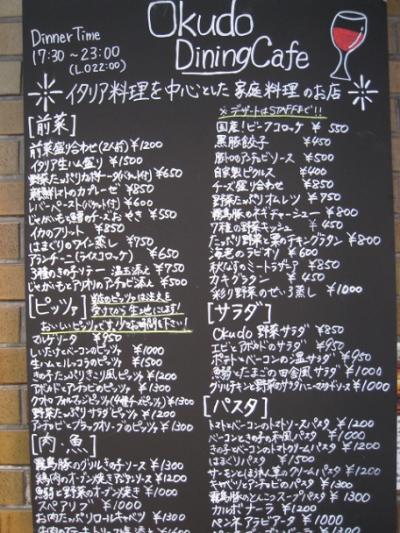 Dinner Time
17:30～23:00
(L.O 22:00)
Okudo
Dining Cafe
イタリア料理を中心とした家庭料理のお店
[前菜]
前菜盛り合わせ(2人分) ¥1200
イタリア生ハム盛り ¥1500
¥650
カプレーゼ ¥850
レバーペースト(バケット付) ¥600
じゃがいもと チーズお やき ¥550
イカのフリット ¥850
はまぐりのワイン蒸し ¥700
アランチーニ(ライスコロッケ) ¥650
3種のきのこソテー 温玉添え ¥750
じゃがいもと アンチョビ添え ¥500
[ピッツァ]
マルゲリータ ¥950
しいたけとベーコンのピッツァ ¥1000
生ハムとルッコラのピッツァ ¥1500
きの子たっぷり ピッツァ ¥1200
アボカドとアンチョビのピッツァ ¥1300
クアトロフォルマッジ(4種チーズピッツァ) ¥1300
野菜たっぷりサラダピッツァ ¥1200
アンチョビとブラックオリーブのピッツァ ¥1100
[肉・魚]
霧島豚のグリルきの子ソース ¥1300
鶏肉のオーブン焼き ソース ¥1100
と野菜のオーブン焼き ¥1000
スペアリブ ¥1000
お肉たっぷりロールキャベツ ¥1300
※デザートはSTAFFまで!!
国産!ビーフコロッケ ¥550
黒豚餃子 ¥450
豚トロのアンチョビソース ¥500
自家製ピクルス ¥400
チーズ盛り合わせ ¥850
野菜たっぷりオムレツ ¥750
霧島豚のネギチャーシュー ¥800
7種の野菜キッシュ ¥450
たっぷり野菜と栗のチキングラタン ¥800
海老のラビオリ ¥600
秋なすのミートラザニア ¥850
カキグラタン ¥450
彩り野菜のせいろ蒸し ¥1000
[サラダ]
Okudo 野菜サラダ ¥850
エビとアボカドのサラダ ¥950
ポテトとベーコンの温サラダ ¥950
たまごの田舎風サラダ ¥1000
グリルチキンと野菜のサラダハニーマスタードソース ¥1000
[パスタ]
トマトとベーコンのトマトソースパスタ ¥1000
ベーコンときの子の和風パスタ ¥1000
きの子とベーコンのトマトクリームパスタ ¥1200
はまぐりパスタ ¥1500
サーモンとほうれん草のクリームパスタ ¥1200
キャベツとアンチョビのパスタ ¥1000
霧島豚のとんこつスープパスタ ¥1300
カルボナーラ ¥1200
ペンネアラビアータ ¥1000